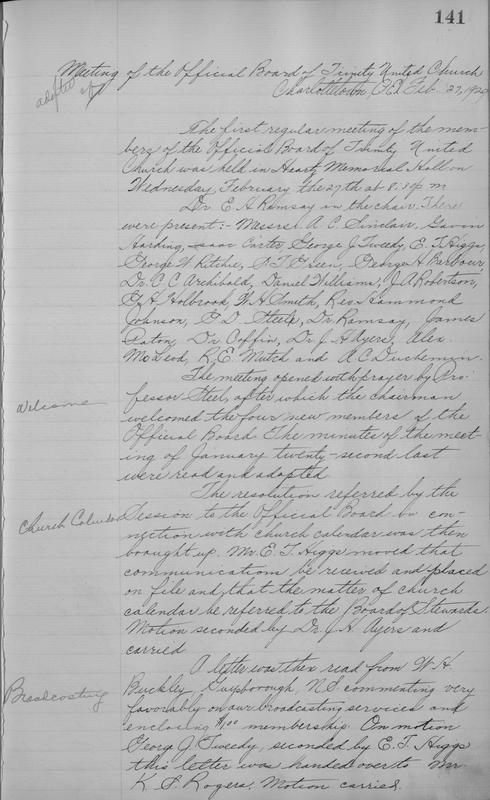 141
Meeting of the Official Board of Trinity United Church
adopted
Charlottetown, P.E.I. Feb. 27, 1929
The first regular meeting of the mem-
bers of the Official Board of Trinity United
Church was held in Heartz Memorial Hall on
Wednesday, February the 27th at 8.30 p m
Dr. E. A. Ramsay in the chair. There
were present:- Messrs. A. C. Sinclair, Gavin
Harding, Isaac Carter, George J. Tweedy, E. T. Higgs,
George W Ritchie, Green, George H. Barbour,
Dr. C. C. Archibald, Daniel Williams, J. A Robertson,
Holbrook, W. H. Smith, Rev. Hammond
Johnson, Steele, Dr. Ramsay, James
Paton, Dr. Coffin, Dr. J. H Ayers, Alex.
McLeod, R. E. Mutch and A. C. Duchemin.
The meeting opened with prayer by Pro-
fessor Steel, after which the chairman
Welcome
welcomed the four new members of the
Official Board. The minutes of the meet-
ing of January twenty-second last
were read and adopted
The resolution referred by the
Church Calendar
Session to the Official Board in con-
nection with church calendar was then
brought up. Mr. E. T. Higgs moved that
communication be received and placed
on file and that the matter of church
calendar be referred to the Board of Stewards.
Motion seconded by Dr. J. H. Ayers and
carried
A letter was then read from W. H.
Broadcasting
Buckley, Guysborough, N.S. commenting very
favorably on our broadcasting services and
enclosing $1.00 membership. On motion
George J. Tweedy, seconded by E. T. Higgs
this letter was handed over to Mr
K. S. Rogers. Motion carried.